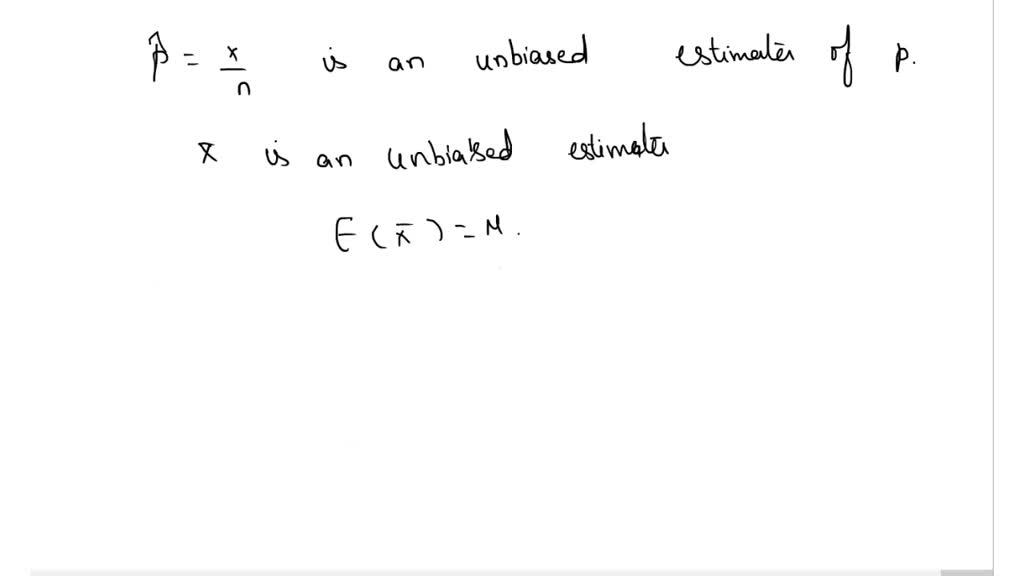 p̂ = x/n is an unbiased estimater of p.
x̄ is an unbiaised estimater
E(x̄) = M.